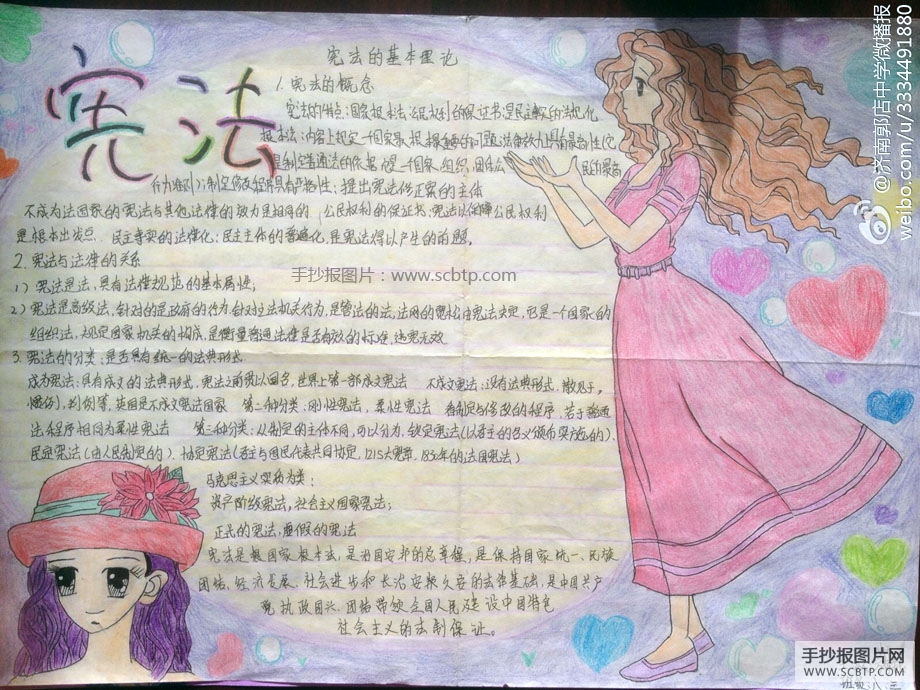 宪法
宪法的基本理论
1.宪法的概念
宪法的特点:国家根本法;公民权利的保证书;是民主事实的法律化
根本法:内容上规定一个国家最根本最重要的问题;法律效力上具有最高性(它
是制定普通法的依据,
民的最高
行为准则);制定修改程序具有严格性;提出宪法修正案的主体
不成为法国家的宪法与其他法律的效力是相同的 公民权利的保证书:宪法以保障公民权利
是根本出发点. 民主事实的法律化:民主主体的普通化,是宪法得以产生的前题。
2.宪法与法律的关系
1)宪法是法,具有法律规范的基本属性;
2)宪法是高级法,针对的是政府的行为,针对立法机关行为,是管法的法,法网的宽松由宪法决定,它是一个国家的
组织法,规定国家机关的构成,是衡量普通法律是否有效的标准,违宪无效
3.宪法的分类:是否具有统一的法典形式
成为宪法:具有成文的法典形式,宪法之前冠以国名,世界上第一部成文宪法 不成文宪法:没有法典形式,散见于,
惯例,判例等,英国是不成文宪法国家 第二种分类:刚性宪法,柔性宪法 看制定与修改的程序,若于普通
法程序相同为柔性宪法 第三种分类:从制定的主体不同,可以分为,钦定宪法(以君主的名义颁布实施的).
民定宪法(由人民制定的).协定宪法(君主与国民代表共同协定,1215大宪章,1830年的法国宪法)
马克思主义实质分类:
资产阶级宪法,社会主义国家宪法;
正式的宪法,虚假的宪法
宪法是我国家根本法,是治国安邦的总章程,是保持国家统一、民族
团结、经济发展、社会进步和长治安久安的法律基础,是中国共产
党执政国兴、团结带领全国人民建设中国特色
社会主义的法制保证。
手抄报图片:www.scbtp.com
@济南郭店中学微播报
weibo.com/u/3334491880
手抄报图片网
WWW.SCBTP.COM